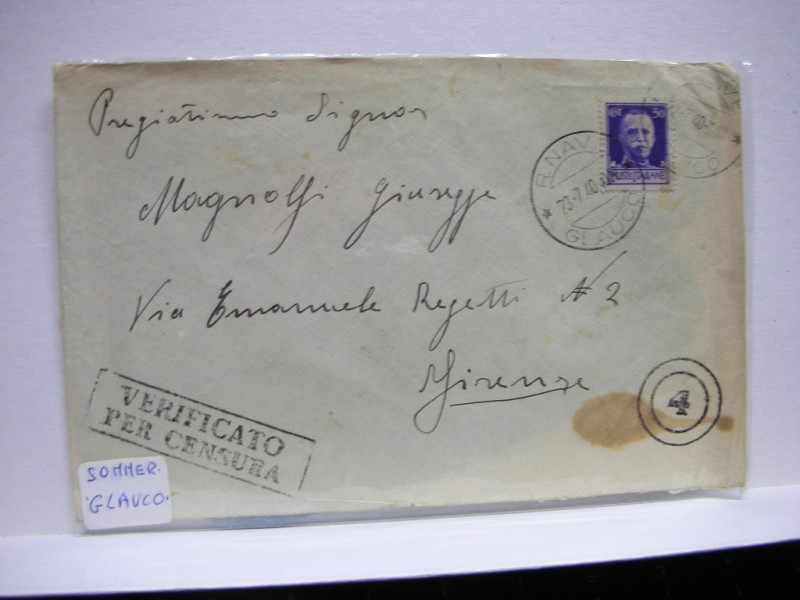 Pregiatissimo Signor
Magnolfi Giuseppe
Via Emanuele Repetti N 2
Firenze
50
POSTE ITALIANE
R.NAVE
23-7-40
GLAUCO
GLAUCO
VERIFICATO
PER CENSURA
4
SOMMER.
"GLAUCO"